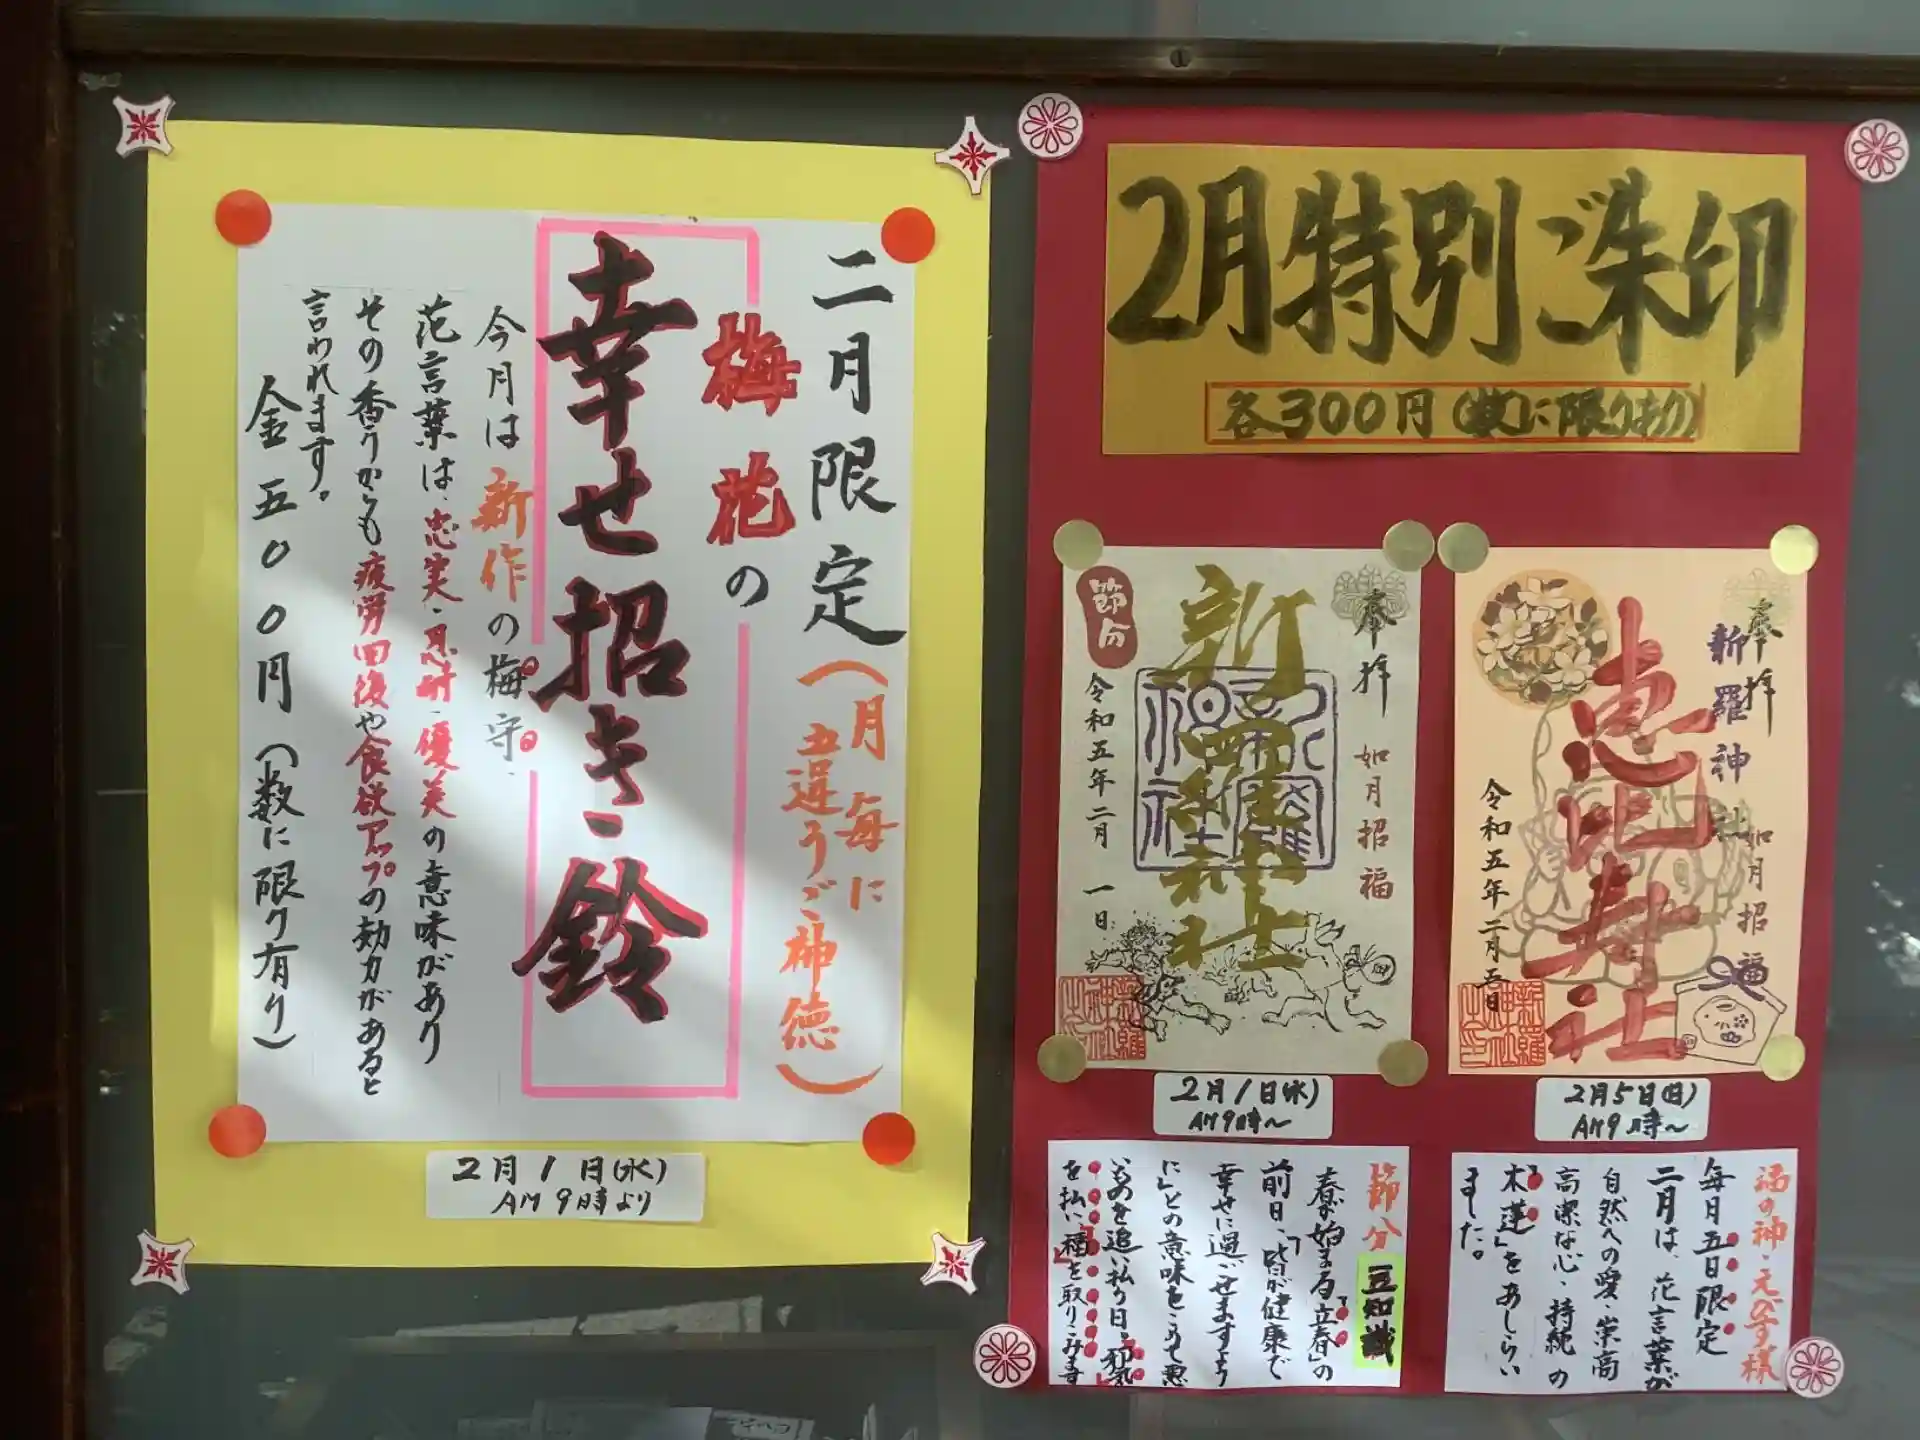 二月限定
(月毎に
違うご神徳)
梅花の
幸せ招き鈴
今月は新作の梅守、
花言葉は、忠実・忍耐・優美の意味があり
その香りからも疲労回復や食欲アップの効力があると
言われます。
金五〇〇円(数に限り有り)
2月1日(水)
AM9時より
2月特別ご朱印
各300円(数に限りあり)
奉拝
如月招福
新羅神社
節分
令和五年二月一日
2月1日(水)
AM9時～
奉拝
新羅神社
如月招福
恵比寿社
令和五年二月五日
2月5日(日)
AM9時～
節分豆知識
春が始まる「立春」の
前日、「皆が健康で
幸せに過ごせますよう
に」との意味をこめて悪
いものを追い払う日。「邪気」
を払い「福」を取りこみます
福の神・えびす様
毎月五日限定
二月は、花言葉が
自然への愛・崇高
高潔な心・持続の
「木蓮」をあしらい
ました。